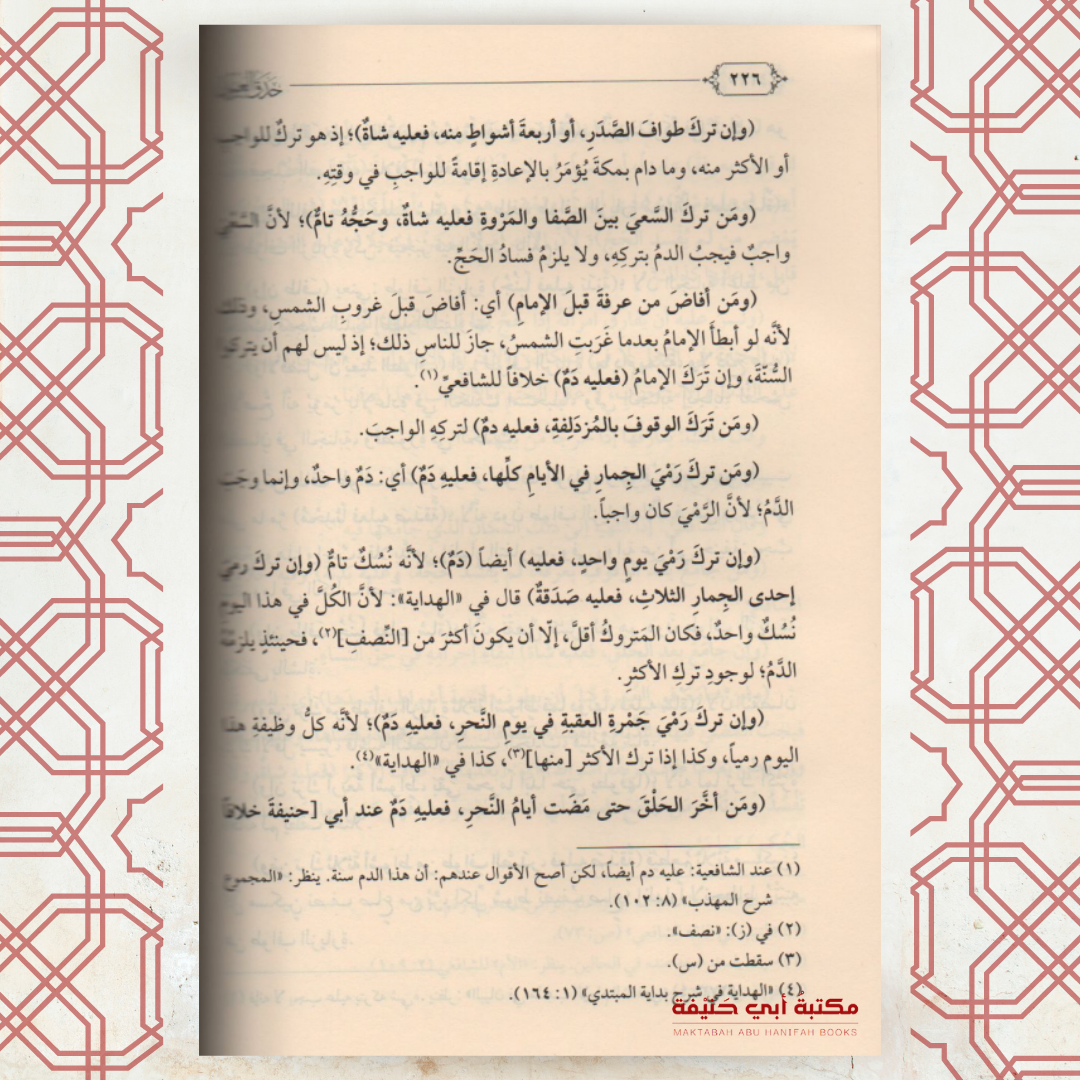 ٢٢٦
(وإن تركَ طوافَ الصَّدَرِ، أو أربعةَ أشواطٍ منه، فعليه شاةٌ)؛ إذ هو تركٌ للواجبِ
أو الأكثر منه، وما دام بمكةَ يُؤمَرُ بالإعادةِ إقامةً للواجبِ في وقتِهِ.
(ومَن تركَ السَّعيَ بينَ الصَّفا والمَرْوةِ فعليه شاةٌ، وحَجُّهُ تامٌّ)؛ لأنَّ السَّعْيَ
واجبٌ فيجبُ الدمُ بتركِهِ، ولا يلزمُ فسادُ الحَجِّ.
(ومَن أفاضَ من عرفةَ قبلَ الإمامِ) أي: أفاضَ قبلَ غروبِ الشمسِ، وذلك
لأنَّه لو أبطأَ الإمامُ بعدما غَرَبتِ الشمسُ، جازَ للناسِ ذلك؛ إذ ليس لهم أن يتركوا
السُّنّةَ، وإن تَرَكَ الإمامُ (فعليه دَمٌ) خلافاً للشافعيِّ(١).
(ومَن تَرَكَ الوقوفَ بالمُزدَلِفةِ، فعليه دمٌ) لتركِهِ الواجبَ.
(ومَن تركَ رَمْيَ الجِمارِ في الأيامِ كلِّها، فعليهِ دَمٌ) أي: دَمٌ واحدٌ، وإنما وجبَ
الدَّمُ؛ لأنَّ الرَّمْيَ كان واجباً.
(وإن تركَ رَمْيَ يومٍ واحدٍ، فعليه) أيضاً (دَمٌ)؛ لأنَّه نُسُكٌ تامٌّ (وإن تركَ رميَ
إحدى الجِمارِ الثلاثِ، فعليه صَدَقةٌ) قال في «الهداية»: لأنَّ الكُلَّ في هذا اليومِ
نُسُكٌ واحدٌ، فكان المَتروكُ أقلَّ، إلّا أن يكونَ أكثرَ من [النِّصفِ](٢)، فحينئذٍ يلزمُهُ
الدَّمُ؛ لوجودِ تركِ الأكثرِ.
(وإن تركَ رَمْيَ جَمْرةِ العقبةِ في يومِ النَّحرِ، فعليهِ دَمٌ)؛ لأنَّه كلُّ وظيفةِ هذا
اليوم رمياً، وكذا إذا ترك الأكثر [منها](٣)، كذا في «الهداية»(٤).
(ومَن أخَّرَ الحَلْقَ حتى مَضَت أيامُ النَّحرِ، فعليهِ دَمٌ عند أبي [حنيفةَ خلافاً
(١) عند الشافعية: عليه دم أيضاً، لكن أصح الأقوال عندهم: أن هذا الدم سنة. ينظر: «المجموع
شرح المهذب» (٨: ١٠٢).
(٢) في (ز): «نصف».
(٣) سقطت من (س).
(٤) «الهداية في شرح بداية المبتدي» (١: ١٦٤).
مكتبة أبي حنيفة
MAKTABAH ABU HANIFAH BOOKS